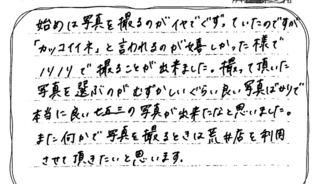 始めは写真を撮るのがイヤでぐずっていたのですが
「カッコイイネ」と言われるのが嬉しかった様で
ノリノリで撮ることが出来ました。撮って頂いた
写真を選ぶのがむずかしいぐらい良い写真ばかりで
本当に良い七五三の写真が出来たなと思いました。
また何かで写真を撮るときは荒井店を利用
させて頂きたいと思います。